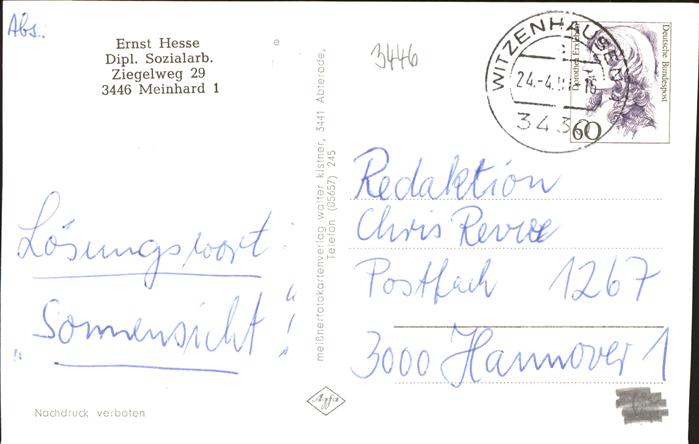 Abs.:
Ernst Hesse
Dipl. Sozialarb.
Ziegelweg 29
3446 Meinhard 1
3446
WITZENHAUSEN
24.-4.
343
Deutsche Bundespost
60
Lösungswort:
„Sonnensicht“!
Nachdruck verboten
meißner-fotokartenverlag walter kistner, 3441 Abterode,
Telefon (05657) 245
Agfa
Redaktion
Chris Revue
Postfach 1267
3000 Hannover 1